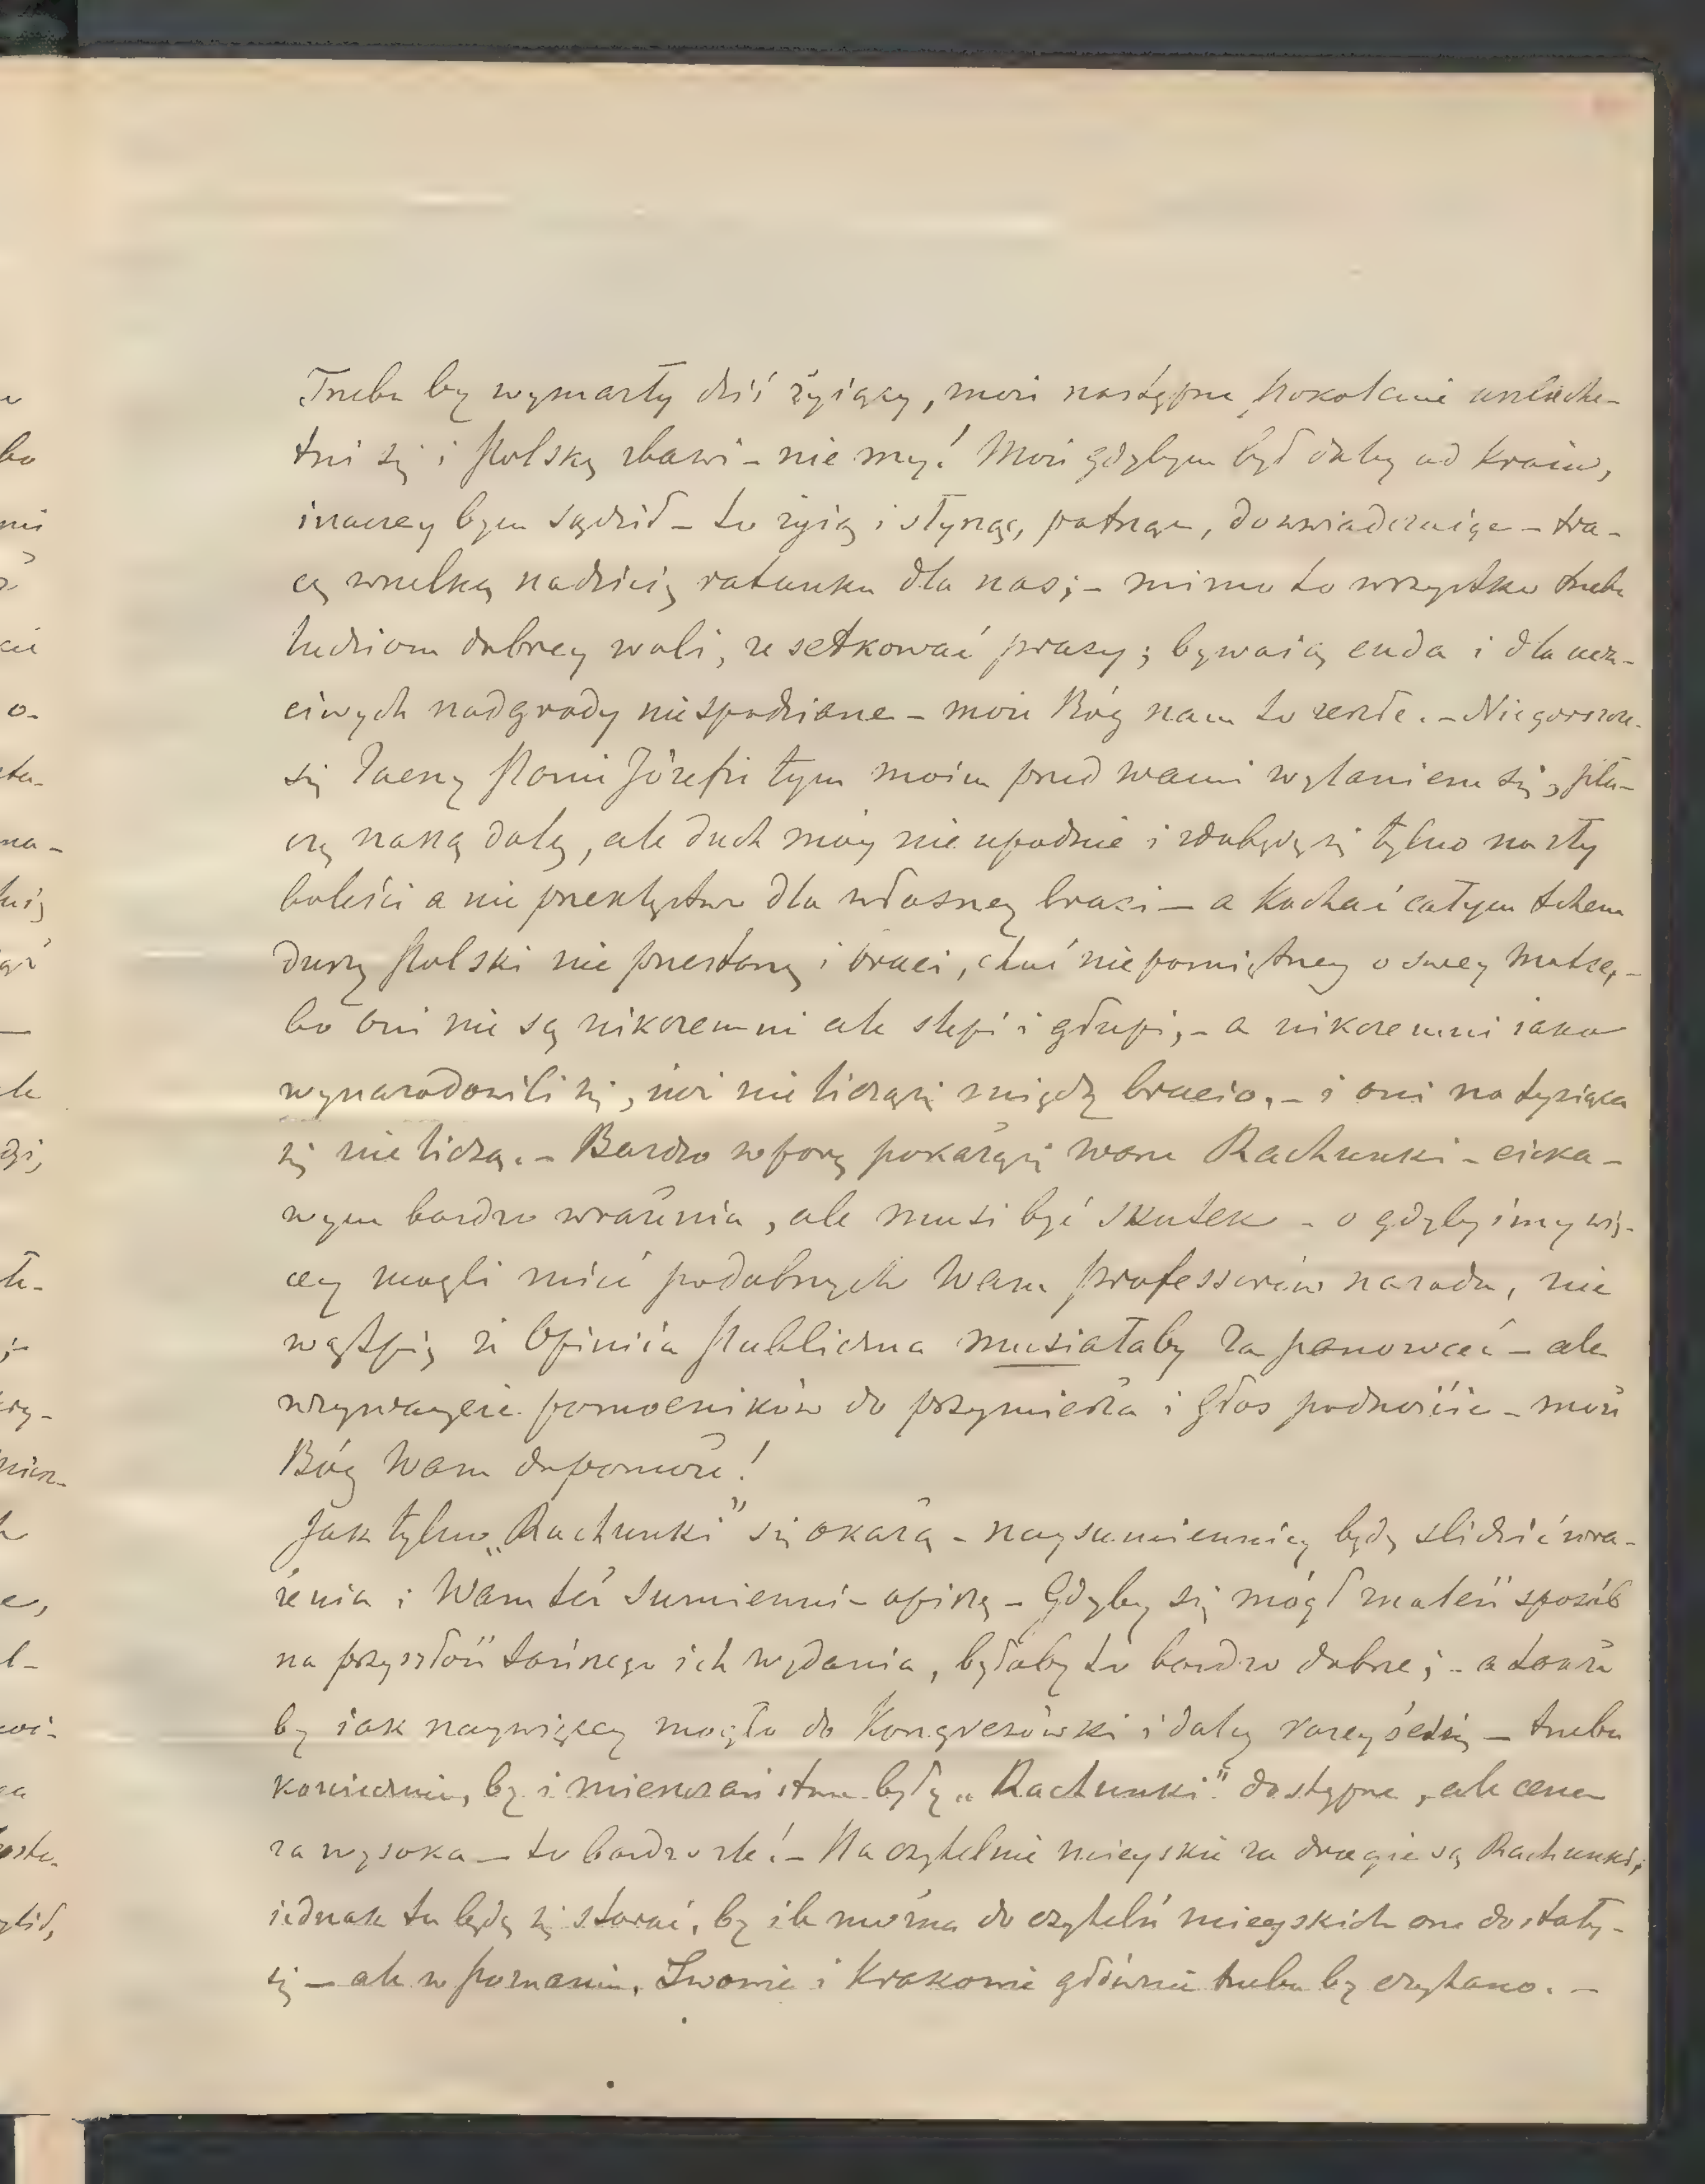 Trzeba by wymarły dziś żyiący, może następne pokolenie uszlache-
tni się i Polskę zbawi – nie my! Może gdybym był daley od kraiu,
inaczey bym sądził – tu żyią i słyszą, patrzą, doswiadczaiąc – tra-
cę wszelką nadzieię ratunku dla nas; – mimo to wszystko trzeba
ludziom dobrey woli, ze setkować pracy; bywaią cuda i dla ucz-
ciwych nadgrody niespodziane – może Bóg nam to zeszle. – Nie gorszcie
się Zacny Panie Józefie tym moim przed wami wylaniem się, pła-
czę naszą dolę, ale duch móy nie upadnie i zdobędę się tylko na łzy
boleści a nie przeklęstwo dla własney braci – a kochać całym tchem
duszy Polski nie przestanę i braci, choć niepomiętney o swey Matce, –
bo oni nie są nikczemni ale slepi i głupi, – a nikczemni iako
wynarodowili się, iuż nie liczą się między bracio, – i oni na tysiąca
się nie liczą. – Bardzo w porę pokażą się wasze Rachunki – cieka-
wym bardzo wrażenia, ale musi być skutek – o gdybyśmy wię-
cey mogli mieć podobnych Wam professorów narodu, nie
wątpię że Opiniia Publiczna musiałaby zapanować – ale
wzywaycie pomocników do przymierza i głos podnoście – może
Bóg Wam dopomoże!
Jak tylko „Rachunki" się okażą – naysumienniey będę sledzić wra-
żenia i Wam też sumiennie opiszę – Gdyby się mógł znaleść sposób
na przyszłość tańszego ich wydania, byłoby to bardzo dobrze; – a toż że
by iak naywięcey mogło do Kongresówki i daley rozeyść się – trzeba
koniecznie, by i mieszczaństwu były „Rachunki" dostępne, ale cena
za wysoka – to bardzo źle! – Na czytelnie mieyskie za drogie są Rachunki,
iednak tu będę się starać, by ile można do czytelń mieyskich one dostały-
się – ale w Poznaniu, Lwowie i Krakowie głównie trzeba by czytano. –